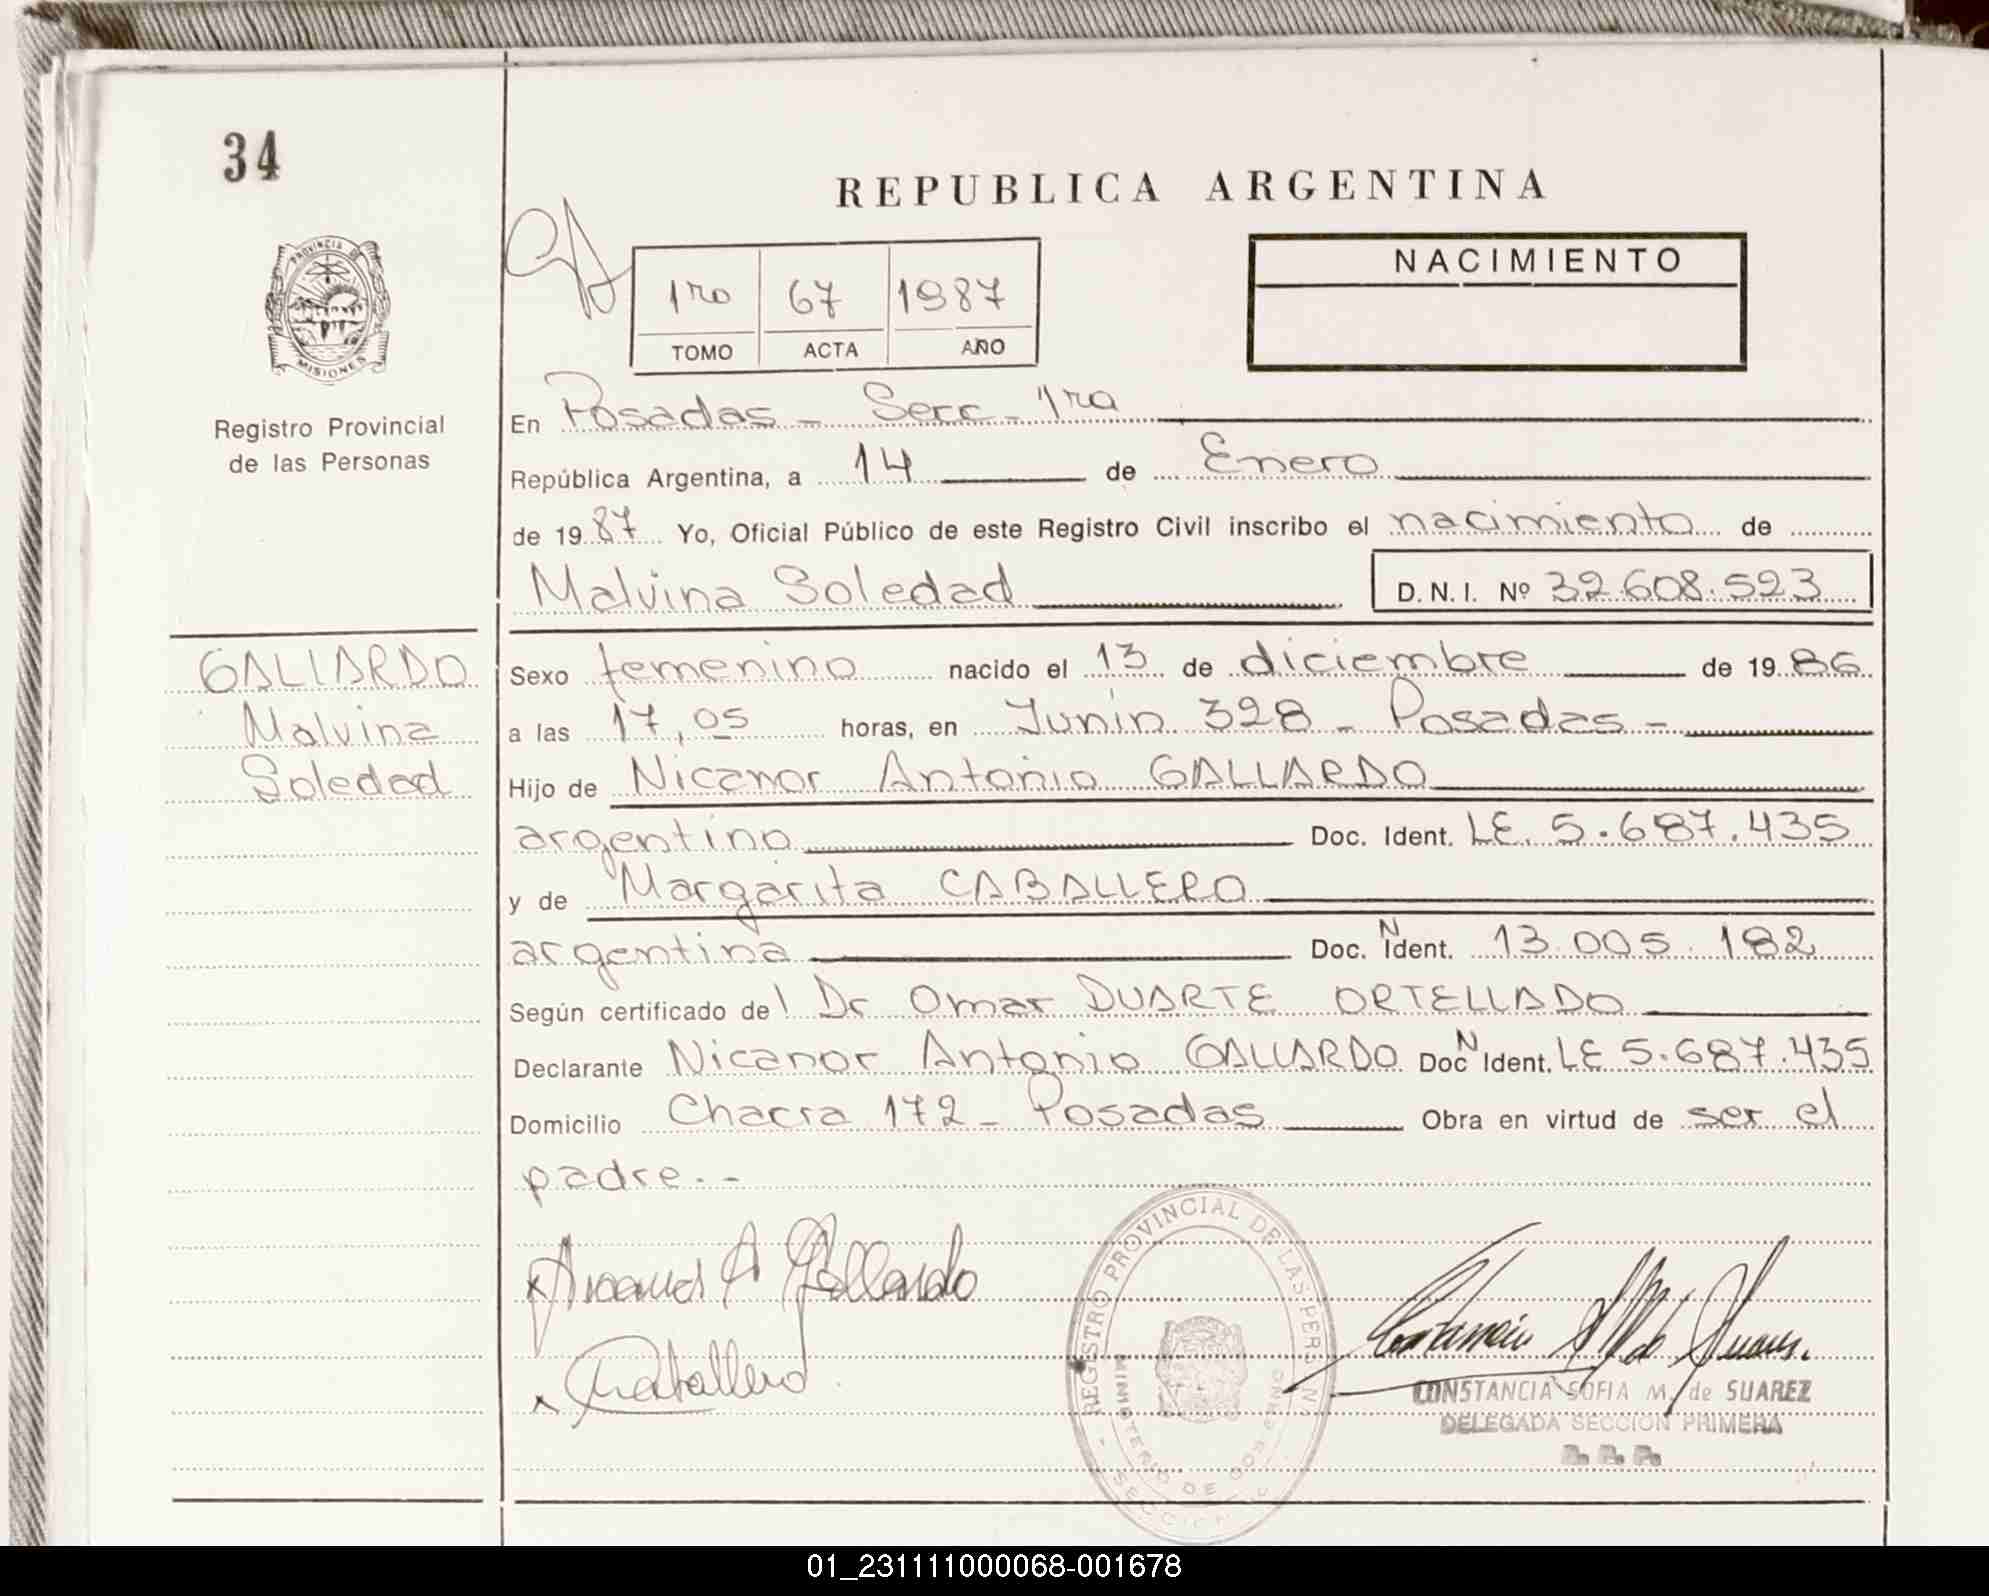 34
REPUBLICA ARGENTINA
PROVINCIA DE
MISIONES
Registro Provincial
de las Personas
1ro 67 1987
TOMO ACTA AÑO
NACIMIENTO
En Posadas - Secc - 1ra
República Argentina, a 14 de Enero
de 19 87 Yo, Oficial Público de este Registro Civil inscribo el nacimiento de
Malvina Soledad D.N.I. Nº 32.608.523
GALLARDO
Malvina
Soledad
Sexo femenino nacido el 13 de diciembre de 19 86
a las 17,05 horas, en Junin 328 - Posadas -
Hijo de Nicanor Antonio GALLARDO
argentino Doc. Ident. LE. 5.687.435
y de Margarita CABALLERO
argentina Doc. N Ident. 13.005.182
Según certificado de l Dr Omar DUARTE ORTELLADO
Declarante Nicanor Antonio GALLARDO Doc N Ident. LE 5.687.435
Domicilio Chacra 172 - Posadas Obra en virtud de ser el
padre.-
A Gallardo
Caballero
REGISTRO PROVINCIAL DE LAS PERSONAS
MINISTERIO DE GOBIERNO
SECCION
CONSTANCIA SOFIA M. de SUAREZ
DELEGADA SECCION PRIMERA
R. P. P.
01_231111000068-001678